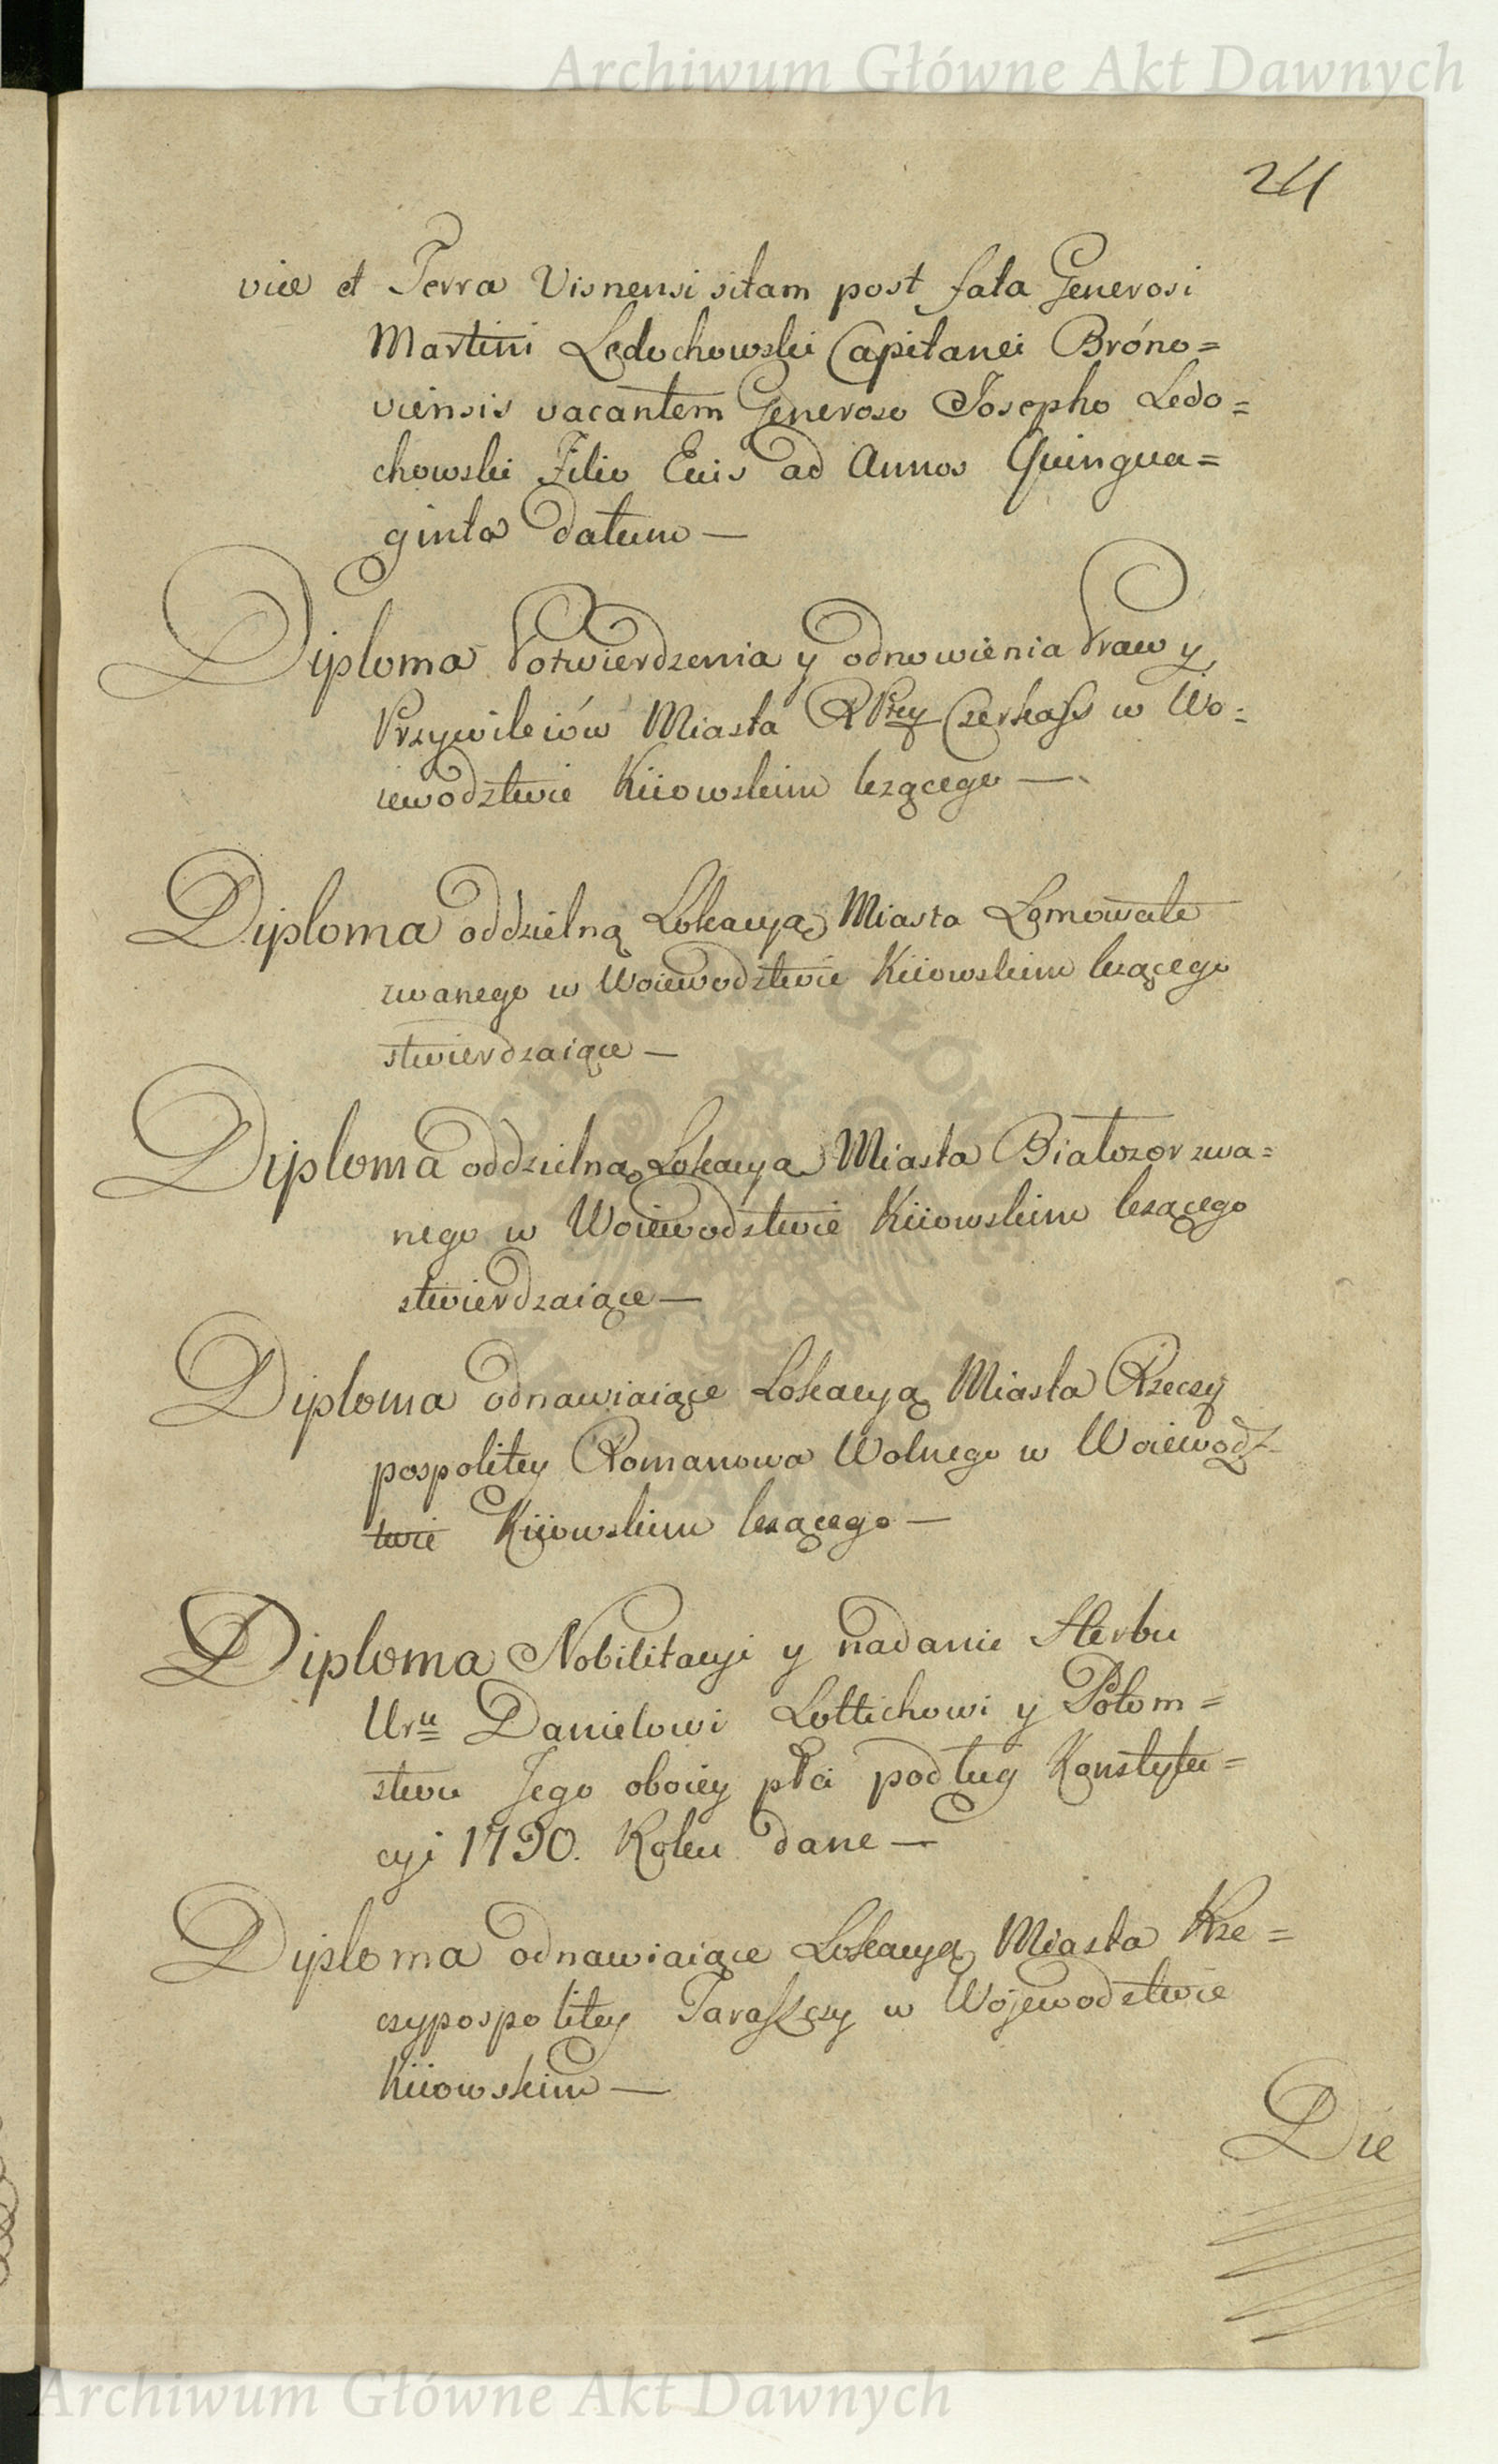 Archiwum Główne Akt Dawnych
24
vice et Terra Visnensi sitam post fata Generosi
Martini Ledochowski Capitanei Bróno=
viensis vacantem Generoso Josepho Ledo=
chowski Filio Euis ad Annos Quinqua=
ginta datum —
Diploma Potwierdzenia y odnowienia Praw y
Przywileiów Miasta RPtey Czerkass w Wo=
iewodztwie Kiiowskim leżącego —
Diploma oddzielną Lokacyą Miasta Łomowate
zwanego w Woiewodztwie Kiiowskim leżącego
stwierdzaiące —
Diploma oddzielną Lokacyą Miasta Białozor zwa=
nego w Woiewodztwie Kiiowskim leżącego
stwierdzaiące —
Diploma odnawiaiące Lokacyą Miasta Rzeczy
pospolitey Romanowa Wolnego w Woiewodz-
twie Kiiowskim leżącego —
Diploma Nobilitacyi y nadanie Herbu
Uru Danielowi Lottichowi y Potom=
stwu Jego oboiey płci podług Konstytu=
cyi 1790. Roku dane —
Diploma odnawiaiące Lokacyą Miasta Rze=
czypospolitey Taraszczy w Wojewodztwie
Kiiowskim —
Die
ARCHIWUM GŁÓWNE AKT DAWNYCH
Archiwum Główne Akt Dawnych